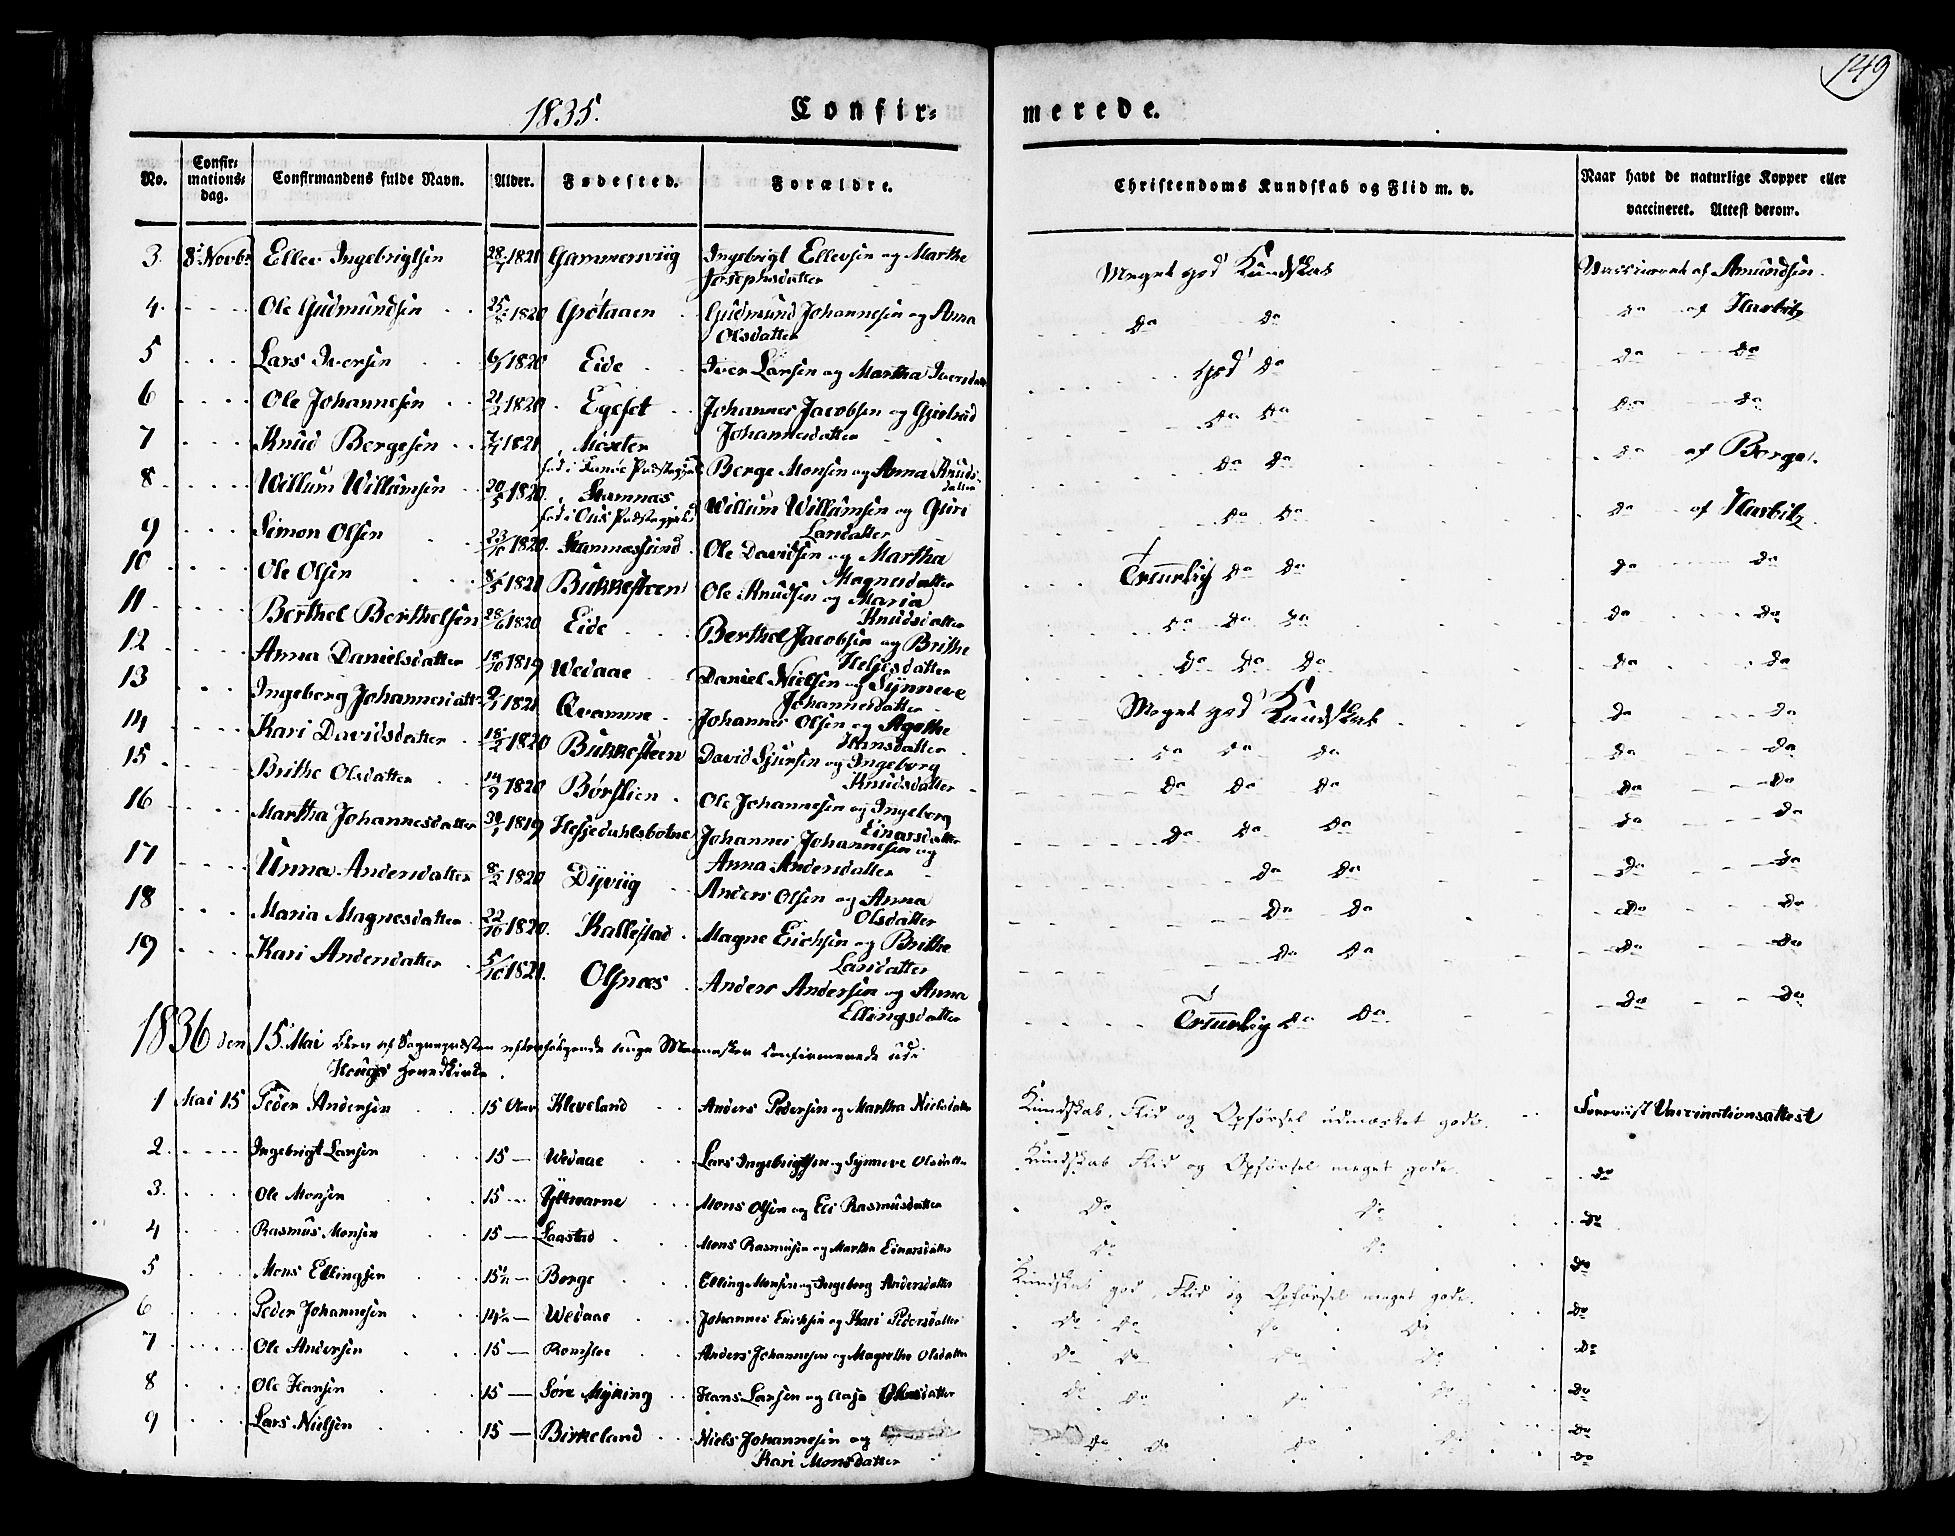 149
1835. Confirmerede.
No. Confirmationsdag. Confirmandens fulde Navn. Alder. Fødested. Forældre. Christendoms Kundskab og Flid m. v. Naar havt de naturlige Kopper eller vaccineret. Attest derom.
3. 8de Novbr Ellev Ingebrigtsen 28/7 1821 Gammersviig Ingebrigt Ellevsen og Marthe Josephsdatter Meget god Kundskab Vaccineret af Amundsen.
4. Ole Gudmundsen 25/8 1820 Grotaaen Gudmund Johannesen og Anna Olsdatter Do Do Do af Hurbitz
5 Lars Iversen 6/1 1820 Eide Iver Larsen og Martha Iversdatt god Do Do Do
6 Ole Johannesen 21/2 1820 Egeset Johannes Jacobsen og Gjertrud Johannesdatter Do Do Do Do
7 Knud Bergesen 7/1 1821 Møxter Berge Monsen og Anna Knudsdatter Do Do Do af Berge.
8 Willum Willumsen 20/5 1820. Stamnæs Willum Willumsen og Guri Larsdatter Do Do Do af Hurbitz.
9 Simon Olsen 23/10 1820. Stamnæssund Ole Davidsen og Martha Magnesdatter Temmelig Do Do Do Do
10 Ole Olsen 8/5 1821 Bukkesteen Ole Knudsen og Maria Knudsdatter Do Do Do Do Do
11 Berthel Berthelsen 28/6 1820 Eide Berthel Jacobsen og Brithe Helgesdatter Do Do Do Do Do
12 Anna Danielsdatter 18/10 1819 Wedaae Daniel Nielsen og Synneve Johannesdatter Meget god Kundskab Do Do
13 Ingeborg Johannesdatt 9/1 1821 Qvamme Johannes Olsen og Agathe Hansdatter Do Do Do Do Do
14 Kari Davidsdatter 18/2 1820 Bukkesteen David Sjursen og Ingeborg Knudsdatter Do Do Do Do Do
15 Brithe Olsdatter 14/9 1820 Børslien Ole Johannesen og Ingeborg Einarsdatter Do Do Do Do Do
16 Martha Johannesdatter 30/1 1819 Hessedahlsbotne Johannes Johannesen og Anna Andersdatter Do Do Do Do
17 Unna Andersdatter 8/2 1820 Dyviig Anders Olsen og Anna Olsdatter Do Do Do Do
18 Maria Magnesdatter 22/10 1820. Kallestad Magne Erichsen og Brithe Larsdatter Do Do Do Do
19 Kari Andersdatter 5/10 1821. Olsnæs Anders Andersen og Anna Ellingsdatter Temmelig Do Do Do Do
1836 den 15de Mai af Sognepresten efterfølgende unge Mennesker Confirmerede udi
Hougs Hovedkirke.
1 Mai 15 Peder Andersen 15 Kleveland Anders Pedersen og Martha Nielsdatter Kundskab, Flid og Opførsel udmærket gode. Foreviist Vaccinationsattest
2. Ingebrigt Larsen 15 Wedaae Lars Ingebrigtsen og Synneve Olsdatter Kundskab Flid og Opførsel meget gode. Do
3. Ole Monsen 15 Mons Olsen og Eli Rasmusdatter Do Do Do
4 Rasmus Monsen 15 Laastad Mons Rasmusen og Martha Einarsdatter Do Do Do
5 Mons Ellingsen 15½ Berge Elling Monsen og Ingeborg Andersdatter Kundskab god, Flid og Opførsel meget gode. Do
6 Peder Johannesen 14½ Wedaae Johannes Erichsen og Kari Pedersdatter Do Do Do Do Do
7 Ole Andersen 15 Romsloe Anders Johannesen og Magrethe Olsdatter Do Do Do Do Do
8 Ole Hansen 15 Søre Myking Hans Larsen og Aase Olsdatter Do Do Do Do Do
9 Lars Nielsen 15 Birkeland Niels Johannesen og Kari Monsdatter Do Do Do Do Do